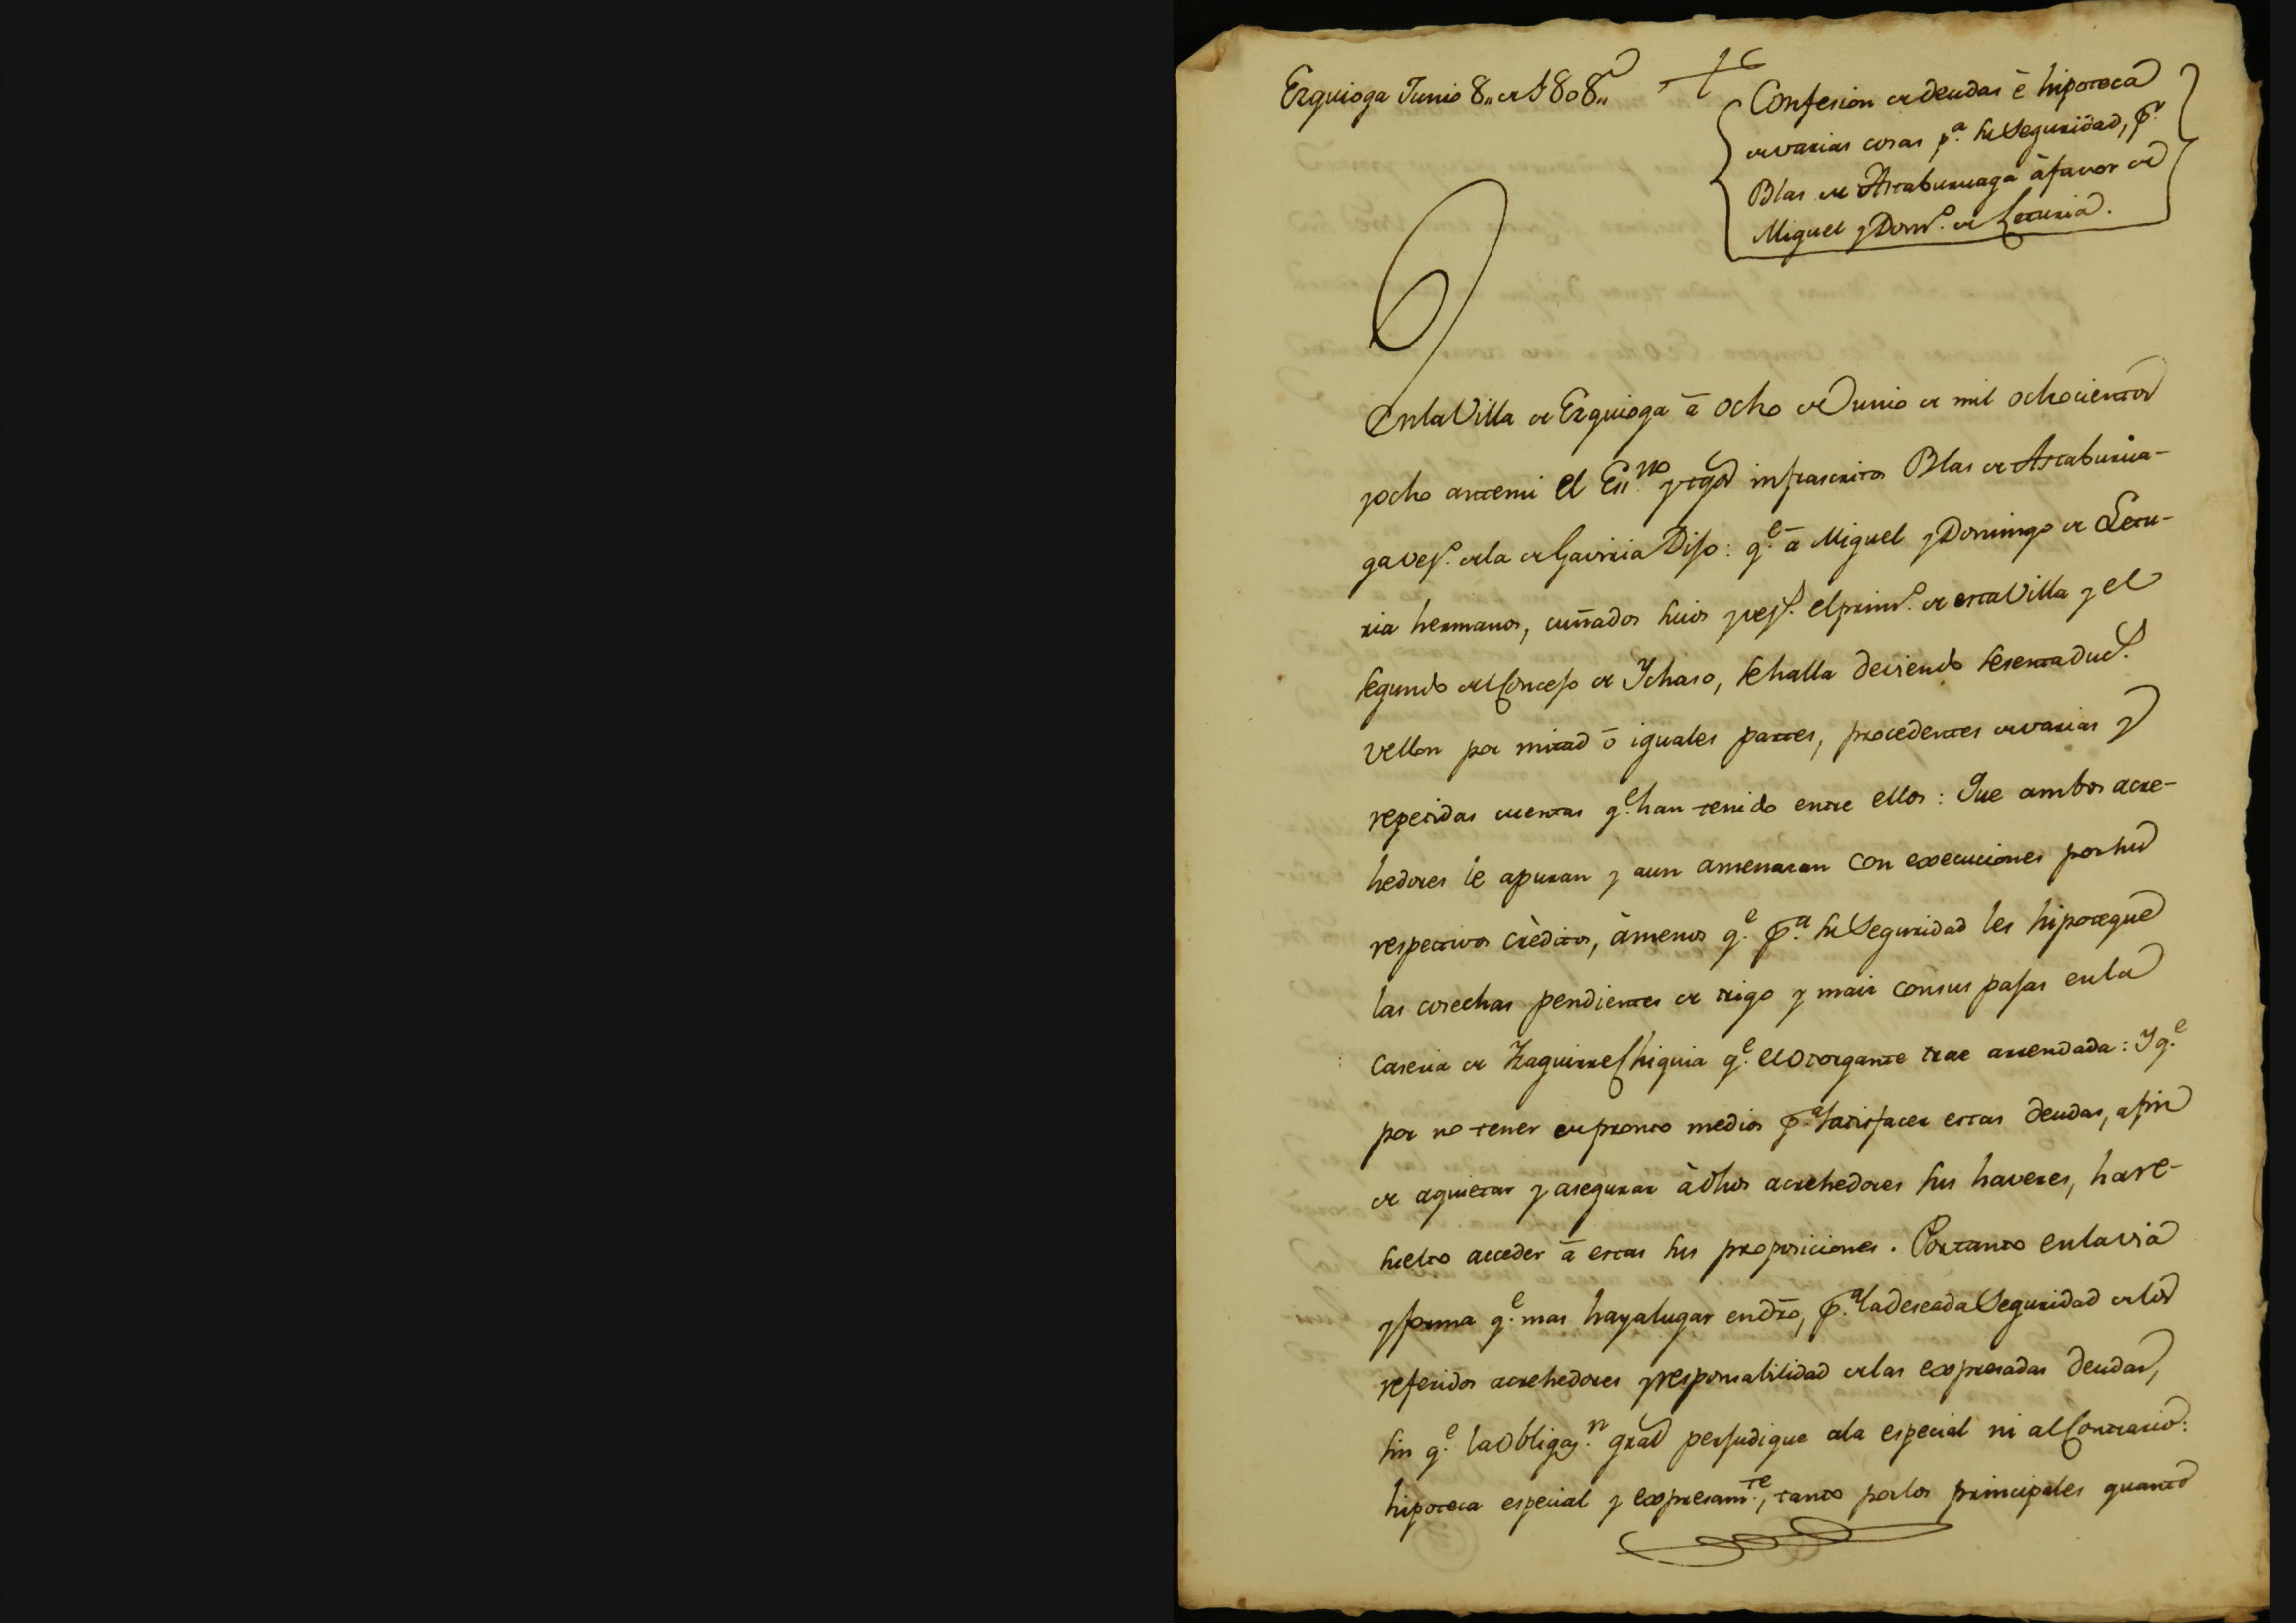 Ezquioga Junio 8,, de 1808,,
16
Confesion de deudas è hipoteca
de varias cosas p.ª su Seguridad, p.r
Blas de Astaburuaga à favor de
Miguel y Dom.º de Leturia.
En la Villa de Ezquioga â ocho de Junio de mil ochocientos
y ocho ante mi el Ess.no y tgos infrascritos Blas de Astaburua-
ga vez.º de la de Gaviria Dijo: q.e â Miguel y Domingo de Letu-
ria hermanos, cuñados suios y vez.s el prim.º de esta Villa y el
segundo del Concejo de Ychaso, se halla deviendo sesenta duc.s
vellon por mitad ô iguales partes, procedentes de varias y
repetidas cuentas q.e han tenido entre ellos: Que ambos acre-
hedores le apuran y aun amenazan con execuciones por sus
respectivos crèditos, àmenos q.e p.ª su Seguridad les hipoteque
las cosechas pendientes de trigo y maiz con sus pajas en la
caseria de Yzaguirre Chiquia q.e el Otorgante trae arrendada: Y q.e
por no tener de pronto medios p.ª satisfacer estas deudas, a fin
de aquietar y asegurar à dhos acrehedores sus haveres, ha re-
suelto acceder â estas sus proposiciones. Por tanto en la via
y forma q.e mas haya lugar en dro, p.ª la deseada Seguridad de los
referidos acrehedores y responsabilidad de las expresadas deudas,
sin q.e la Obligaz.n gral perjudique a la especial ni al Contrario:
hipoteca especial y expresam.te, tanto por los principales quanto